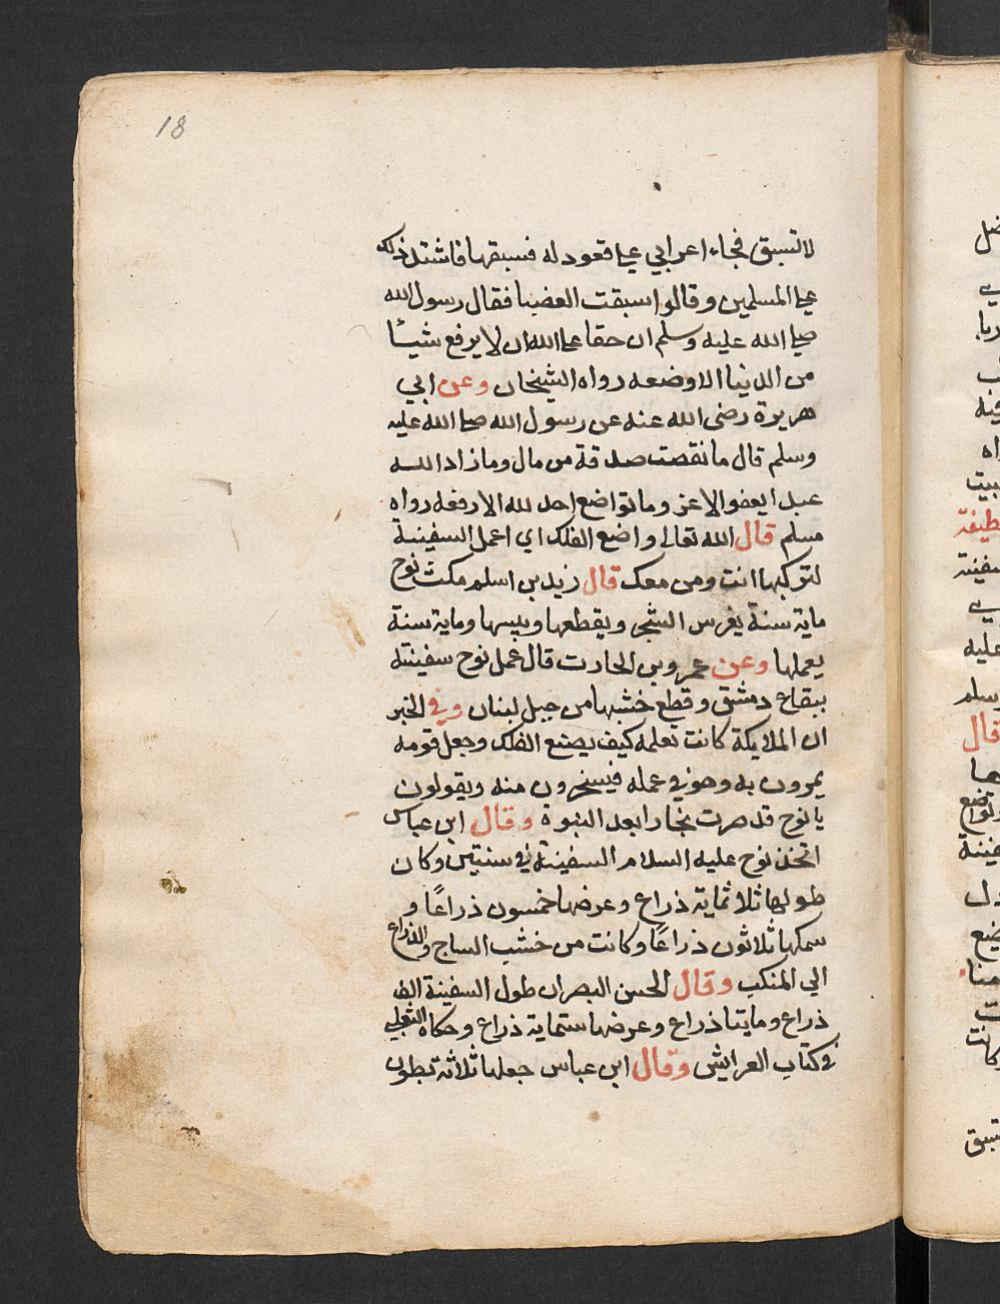 18
لا تسبق فجاء اعرابي على قعود له فسبقها فاشتد ذلك
على المسلمين وقالوا سبقت العضبا فقال رسول الله
صلى الله عليه وسلم ان حقا على الله ان لا يرفع شيئا
من الدنيا الا وضعه رواه الشيخان وعن ابي
هريرة رضى الله عنه عن رسول الله صلى الله عليه
وسلم قال ما نقصت صدقة من مال وما زاد الله
عبدا بعفو الا عز وما تواضع احد لله الا رفعه رواه
مسلم قال الله تعالى واضع الفلك اي اعمل السفينة
لتركبها انت ومن معك قال زيد بن اسلم مكث نوح
ماية سنة يغرس الشجر ويقطعها ويبسها وماية سنة
يعملها وعن عمرو بن الحارث قال عمل نوح سفينته
ببقاع دمشق وقطع خشبها من جبل لبنان وفي الخبر
ان الملايكة كانت تعلمه كيف يصنع الفلك وجعل قومه
يمرون به وهو في عمله فيسخرون منه ويقولون
يا نوح قد صرت نجارا بعد النبوة وقال ابن عباس
اتخذ نوح عليه السلام السفينة في سنتين وكان
طولها ثلاثماية ذراع وعرضها خمسون ذراعًا و
سمكها ثلاثون ذراعًا وكانت من خشب الساج والذراع
الى المنكب وقال الحسن البصرى ان طول السفينة الف
ذراع ومايتا ذراع وعرضها ستماية ذراع وحكاه الثعلبي
في كتاب العرايش وقال ابن عباس جعلها ثلاثة بطون